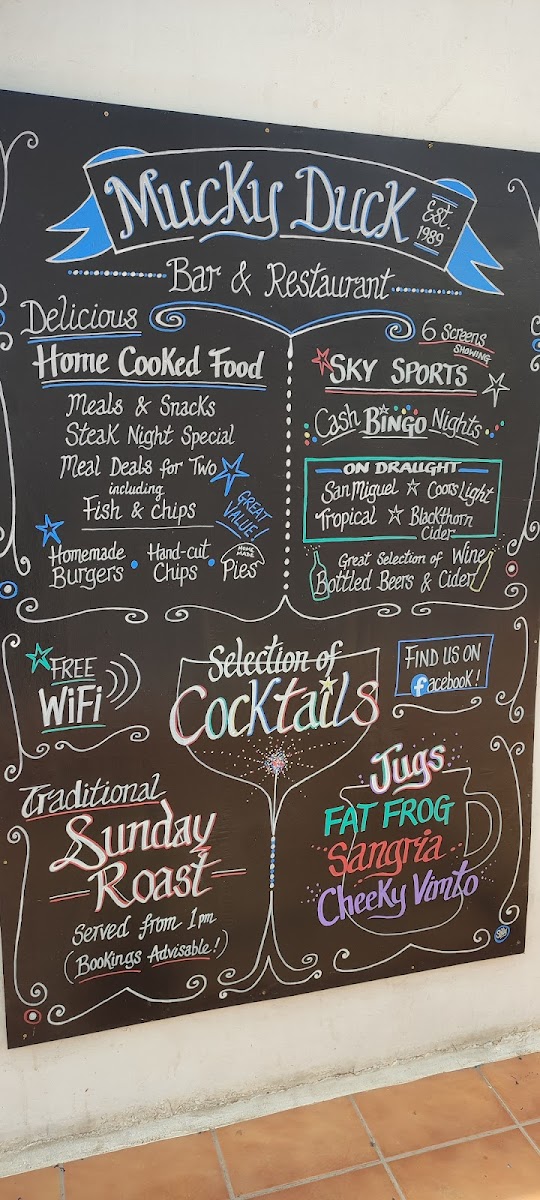 Mucky Duck
Est.
1989
Bar & Restaurant
Delicious
Home Cooked Food
Meals & Snacks
Steak Night Special
Meal Deals for Two
including
Fish & Chips
GREAT
VALUE!
Homemade
Burgers
Hand-cut
Chips
HOME
MADE
Pies
6 Screens
SHOWING
SKY SPORTS
Cash BINGO Nights
ON DRAUGHT
San Miguel ☆ Coors Light
Tropical ☆ Blackthorn
Cider
Great Selection of Wine
Bottled Beers & Cider
FREE
WiFi
Selection of
Cocktails
FIND US ON
facebook!
Traditional
Sunday
Roast
Served from 1pm
(Bookings Advisable!)
Jugs
FAT FROG
Sangria
Cheeky Vimto